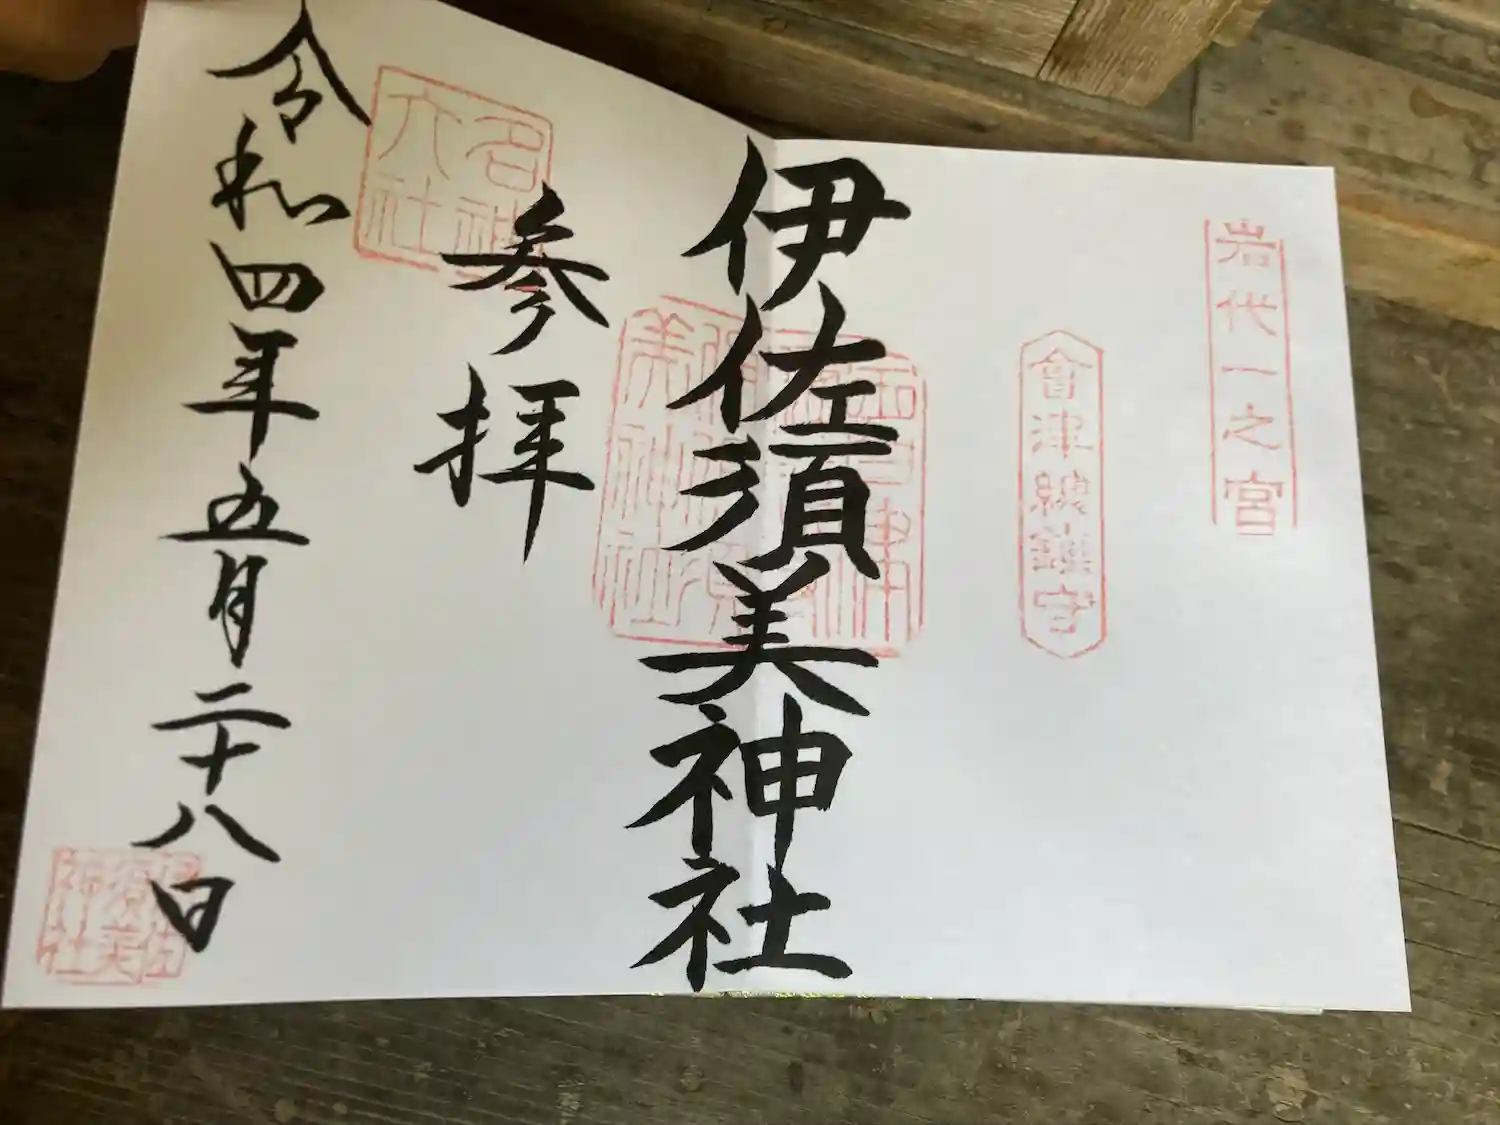 岩代一之宮
會津總鎮守
伊佐須美神社
参拝
名神大社
令和四年五月二十八日
伊佐須美神社